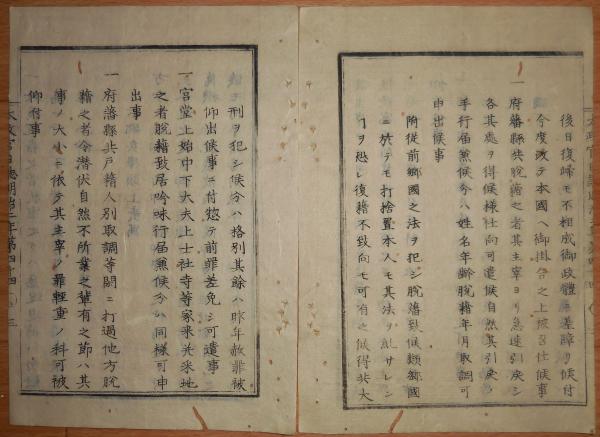 後日復帰モ不相成御政體ニ差障リ候付
今度改テ本國ヘ御掛合之上被召仕候事
一府藩縣共脱籍之者其主宰ヨリ急速引戻シ
各其處ヲ得候様仕向可遣候自然其引戻シ
手行届兼候分ハ姓名年齢脱籍年月取調可
申出候事
附從前郷國之法ヲ犯シ脱籍致候類郷國
ニ於テモ打捨置本人モ其法ヲ免サレン
ヿヲ恐レ復籍不致向モ可有之候得共大
刑ヲ犯シ候分ハ格別其餘ハ昨年赦罪被
仰出候事ニ付惣テ前罪差免シ可遣事
一宮堂上始中下大夫上士社寺等家来并采地
之者脱籍致居吟味行届兼候分ハ同様可申
出事
一府藩縣共戸籍人別取調等閑ニ打過他方脱
籍之者令潜伏自然不所業之輩有之節ハ其
事ノ大小ニ依テ其主宰ノ罪輕重ノ科可被
仰付事
太政官日誌明治二年第四十四